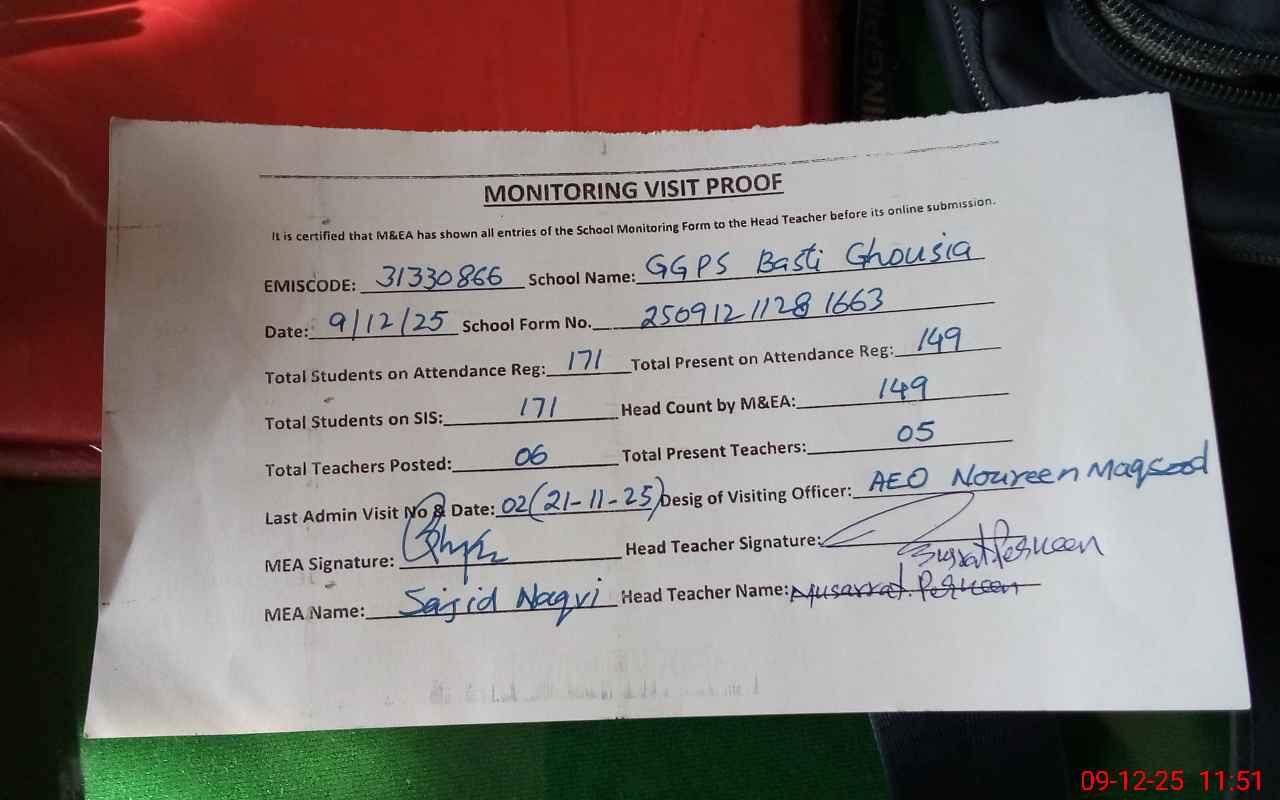 MONITORING VISIT PROOF
It is certified that M&EA has shown all entries of the School Monitoring Form to the Head Teacher before its online submission.
EMISCODE: 31330866 School Name: GGPS Basti Ghousia
Date: 9/12/25 School Form No. 250912 1128 1663
Total Students on Attendance Reg: 171 Total Present on Attendance Reg: 149
Total Students on SIS: 171 Head Count by M&EA: 149
Total Teachers Posted: 06 Total Present Teachers: 05
Last Admin Visit No & Date: 02(21-11-25) Desig of Visiting Officer: AEO Noureen Maqsood
MEA Signature: Head Teacher Signature:
MEA Name: Sajjid Naqvi Head Teacher Name: Musarrat Perveen
09-12-25 11:51